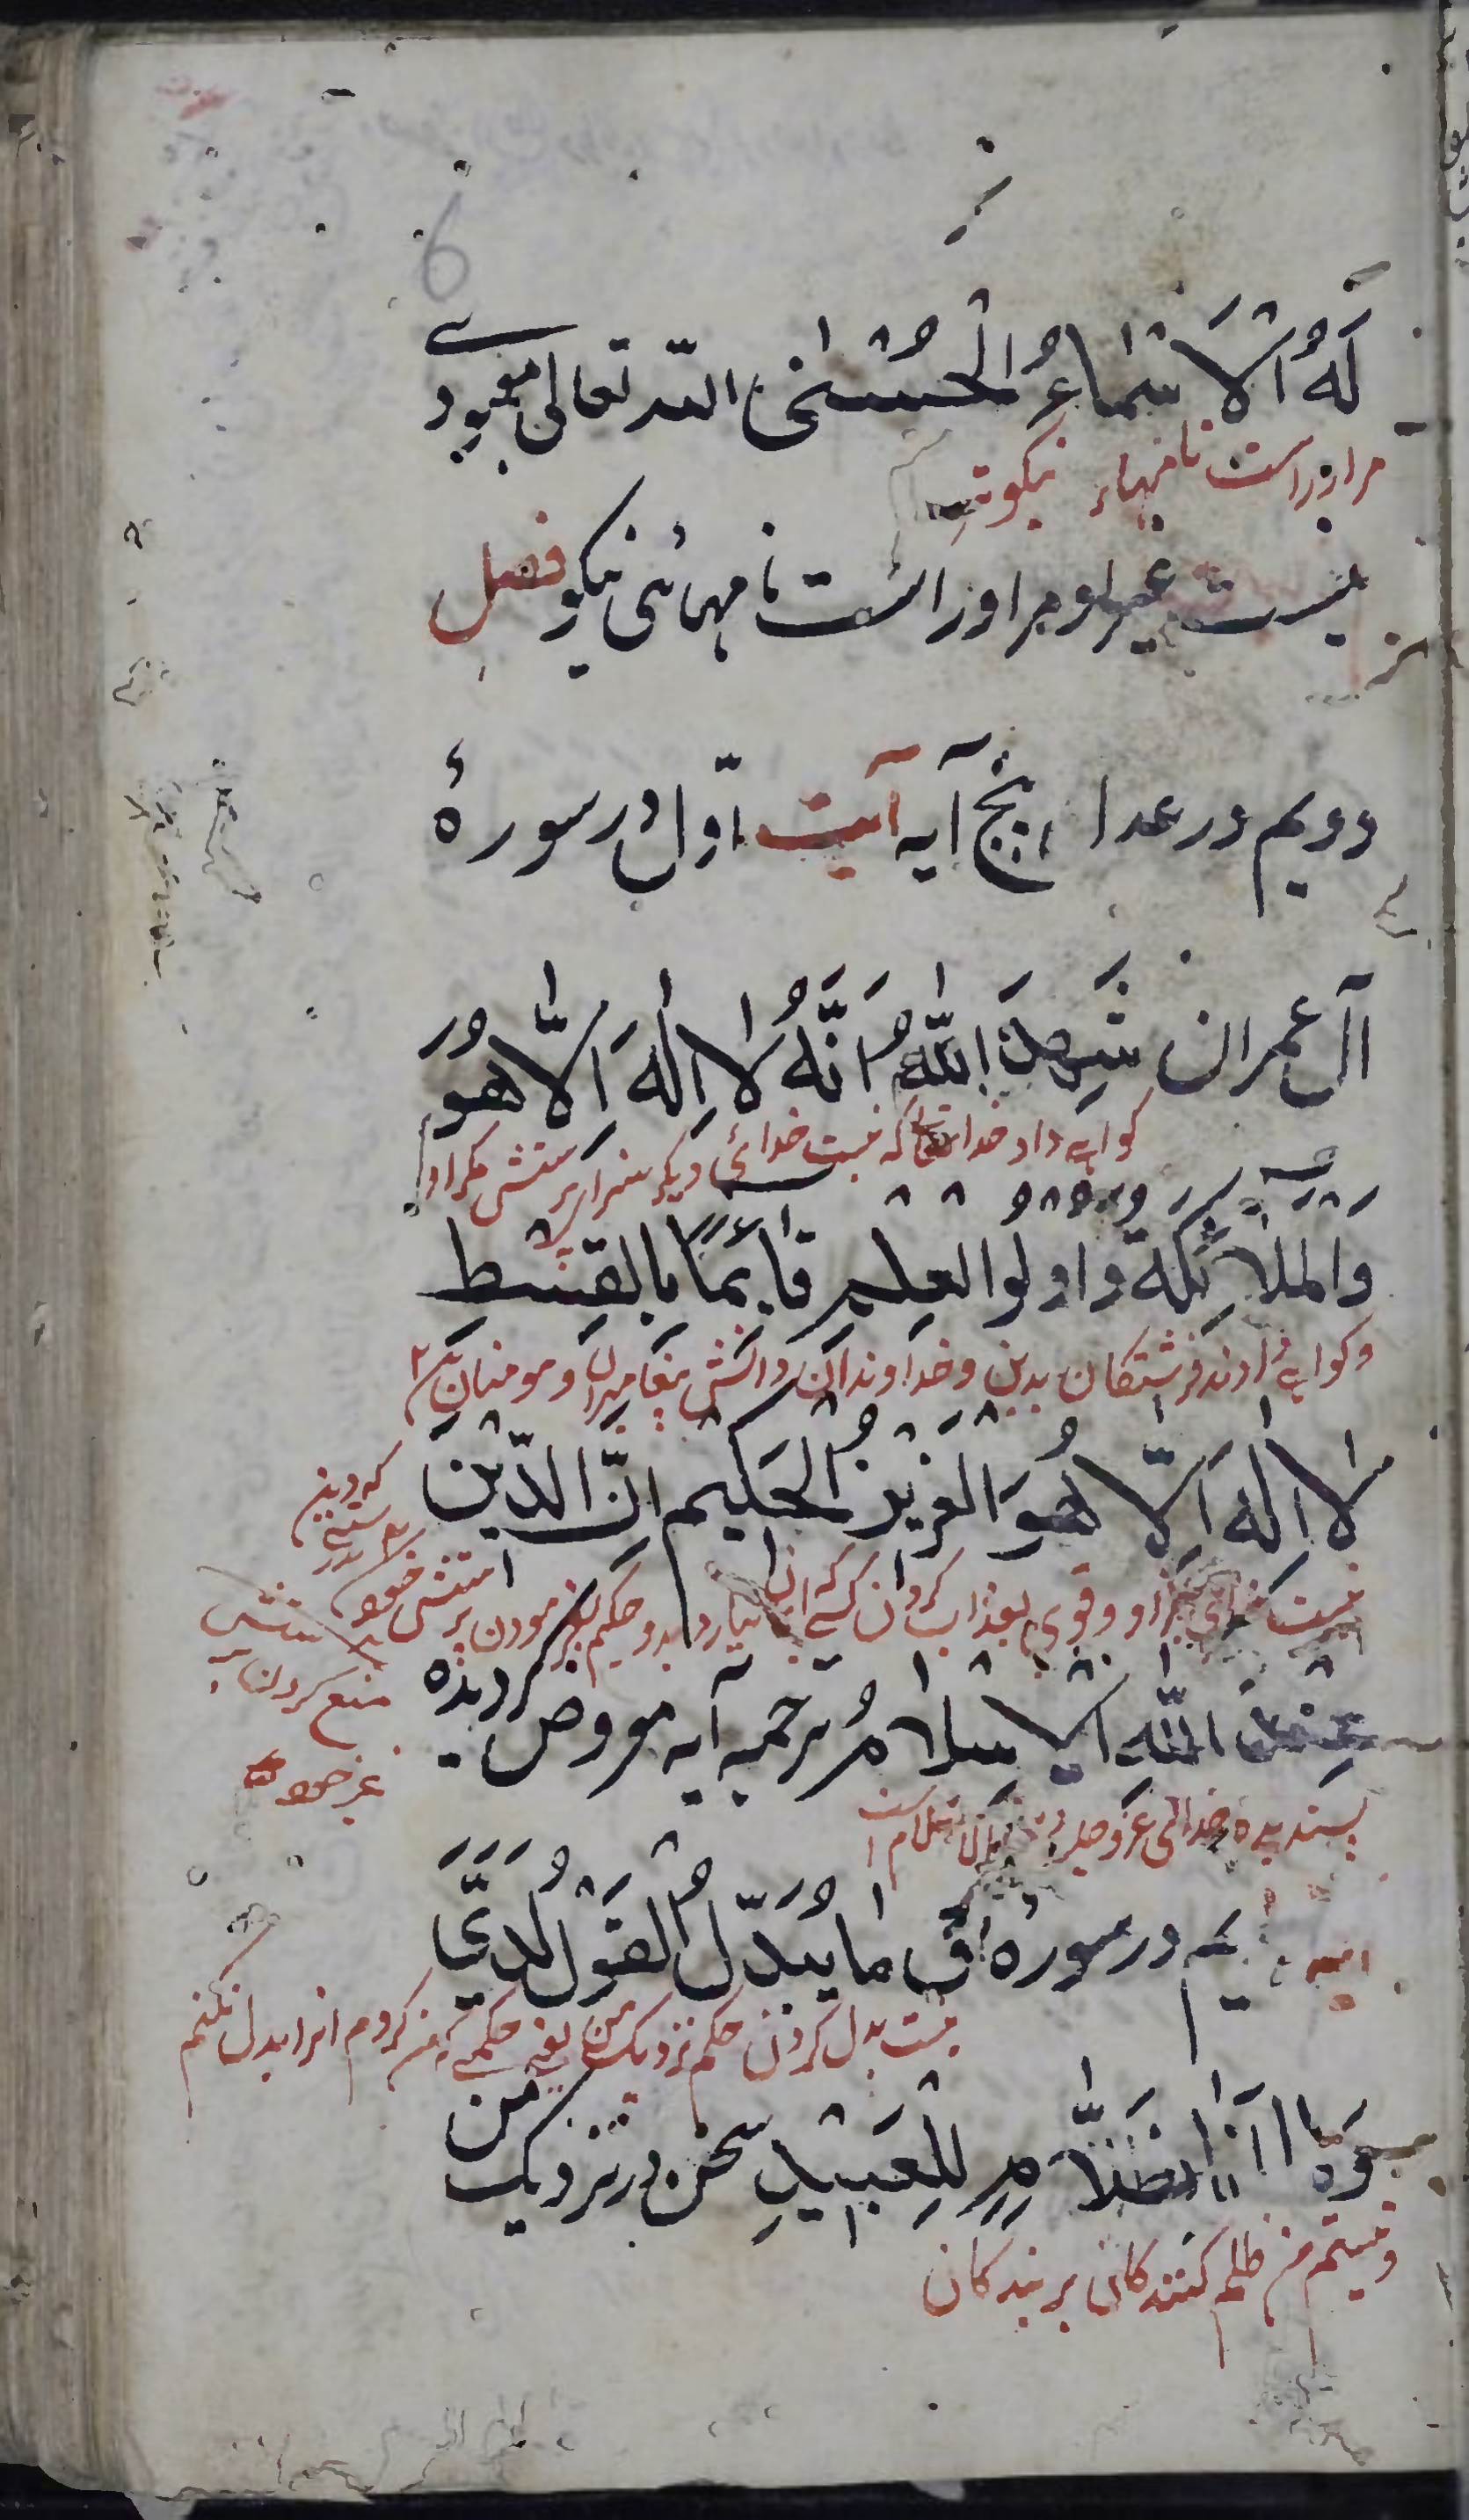 لَهُ الْاَسْمَاءُ الْحُسْنٰی الله تعالی معبودے
مراوراست نامهاء نیکوتر
نیست غیر او مراوراست نامهائی نیکو فصل
دویم در عدا پنج آیه آیت اوّل در سورهٔ
آل عمران شَهِدَ اللّٰهُ اَنَّهُ لَا اِلٰهَ اِلَّا هُوَ
کواهی داد خدا تعا که نیست خدائی دیکر سزاء پرستش مکر او
وَالْمَلَائِکَةُ وَاُولُوا الْعِلْمِ قَائِمًا بِالْقِسْطِ
وکواهی دادند فرشتکان بدین وخداوندان دانش پیغامبران ومومنان
لَا اِلٰهَ اِلَّا هُوَ الْعَزِیْزُ الْحَکِیْمُ اِنَّ الدِّیْنَ
که دین
نیست خدائی جز او وقوی بعذاب کردن کسی که ایمان نیارد بدو حکیم بفرمودن پرستش خود
منع کردن
غیر خود
عِنْدَ اللّٰهِ الْاِسْلَامُ ترجمه آیه معروض کردیده
پسندیده خدائی عزوجل اسلام است
یم در سوره ق مَا یُبَدَّلُ الْقَوْلُ لَدَیَّ
نیست بدل کردن حکم نزدیک من یعنی حکمی که من کردم انرا بدل نکنم
وَمَا اَنَا بِظَلَّامٍ لِلْعَبِیْدِ سخن در نزدیک من
ونیستم من ظلم کنندکان بر بندکان